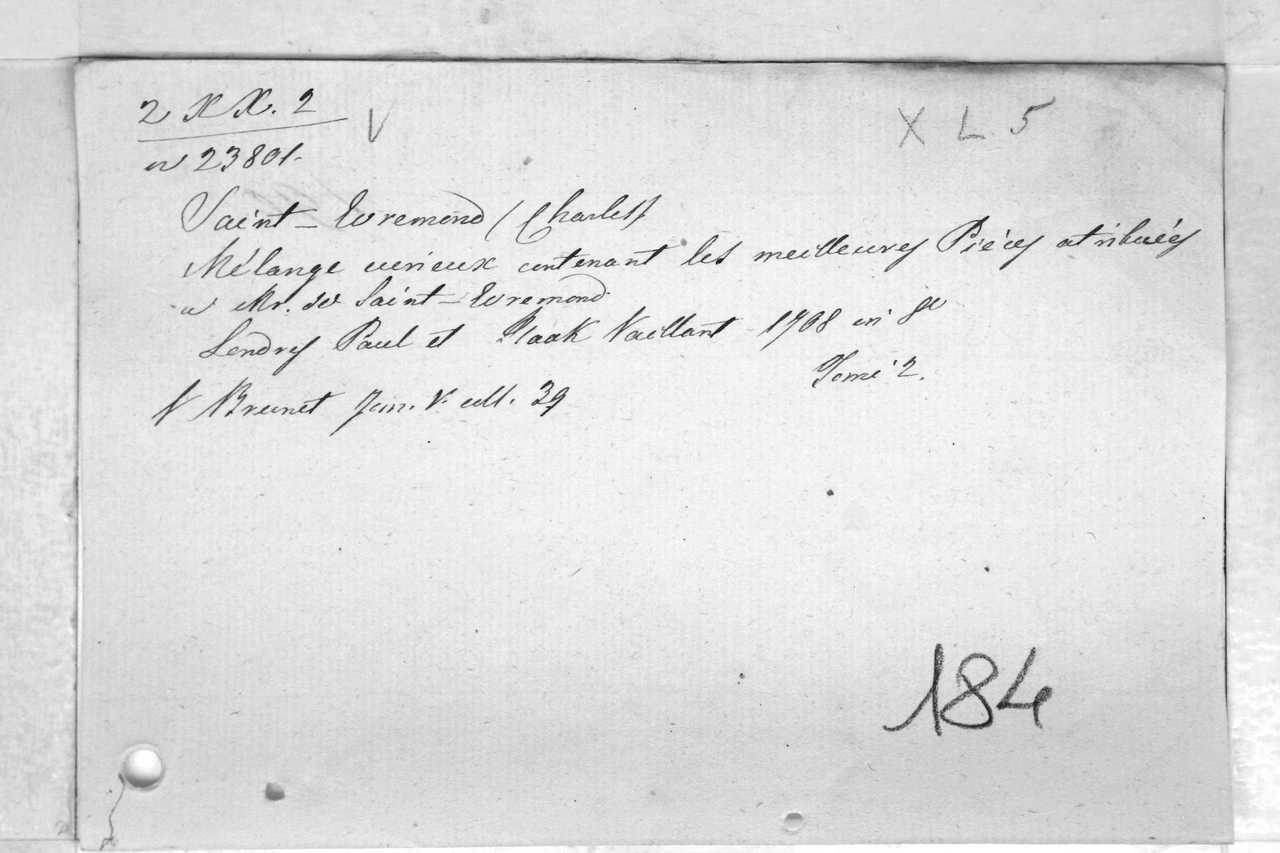 2 X X. 2 V X L 5
a 23801.
Saint-Evremond (Charles)
Mélange curieux contenant les meilleures Pièces atribuées
a Mr. de Saint-Evremond
Londres Paul et Isaak Vaillant 1708 in 8º
Tome 2.
V Brunet Jun. V. coll. 39
184